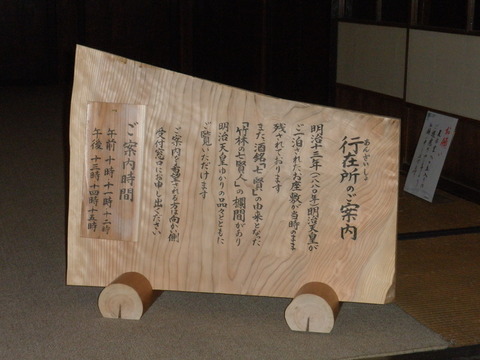 あんざいしょ
行在所のご案内
明治十三年(一八八〇年)明治天皇が
ご一泊されたお座敷が当時のまま
残されております
また、酒銘「七賢」の由来となった
「竹林の七賢人」の欄間があり
明治天皇ゆかりの品々とともに
ご覧いただけます
ご案内を希望される方は向かい側
受付窓口にお申し出ください
ご案内時間
午前 十時・十一時・十二時
午後 十三時・十四時・十五時
お願い